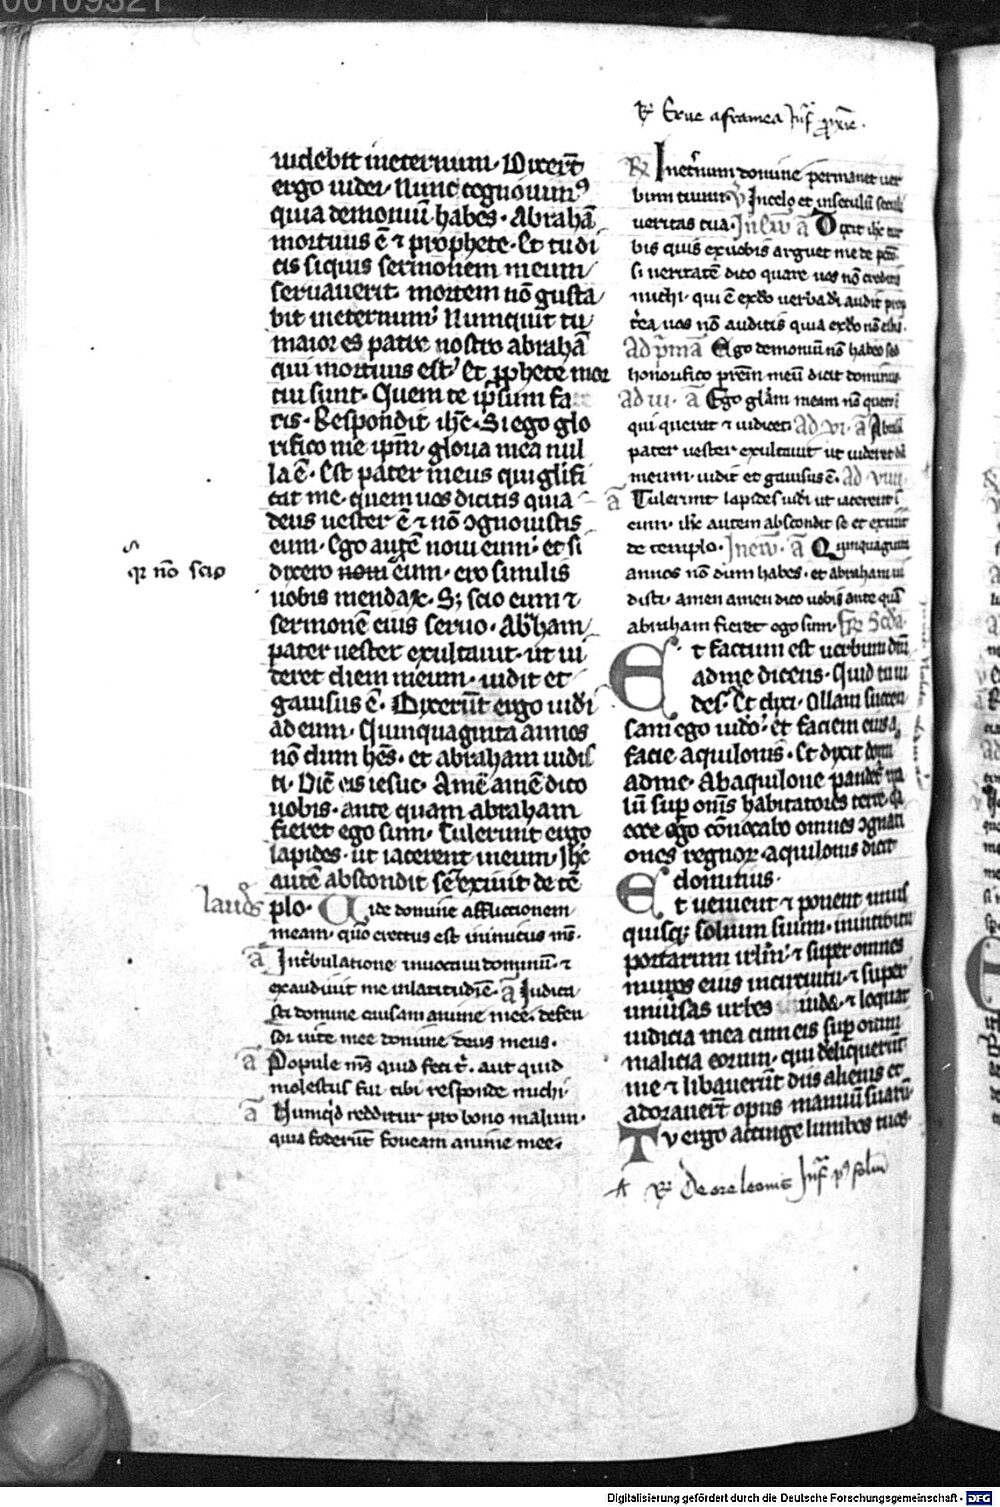 00109321
videbit ineternum. Dixert̄
ergo iudei. Nunc cognouim⁹
quia demoniū habes. Abrahā
mortuus ē ⁊ prophete. Et tu di
cis siquis sermonem meum
seruauerit. mortem nō gusta
bit ineternum. Numquit tu
maior es patre nostro abrahā
qui mortuus est. Et ꝓphete mor
tui sunt. Quem te ip̄sum fa
cis. Respondit ih̄c. Si ego glo
rifico me ip̄m. gloria mea nul
la ē. Est pater meus qui glifi
cat me. quem uos dicitis quia
deus uester ē ⁊ nō ↄgnouistis
eum. Ego autē noui eum. et si
qr̄ nō scio
dixero noui eum. ero similis
uobis mendax. S; scio eum ⁊
sermonē eius seruo. Ab̄ham
pater uester exultauit. ut ui
deret diem meum. uidit et
gauisus ē. Dixerūt ergo iudi
ad eum. Quinquaginta annos
nō dum hēs. et abraham uidis
ti. Dix̄ eis iesuc. Amē amē dico
uobis. ante quam abraham
fieret ego sum. Tulerunt ergo
lapides. ut iacerent ineum. Ih̄c
autē abscondit se exiuit de tē
laudꝰ plo. Uide domine afflictionem
meam. quo erectus est inimicus m̄s.
a͞ Intr̄bulatione inuocaui dominū. ⁊
exaudiuit me inlatitudiē. a͞ Iudica
sti domine causam anime mee. defen
sor uite mee domine deus meus.
a͞ Popule m̄s quid feci t̄. aut quid
molestus fui tibi responde michi.
a͞ Numqd redditur pro bono malum.
quia foderūt foueam anime mee.
℟ Erue a framea Inf̄ ꝓxīe.
℟ Inet̄num domine permanet uer
bum tuum. ℣ Incelo et inseculū seculi
ueritas tua. Inew̄ a͞ Dixit ih̄c tur
bis quis exuobis arguet me de pcc̄o
si ueritatē dico quare uos nō creditis
michi. qui ē exdo uerba di audit prop
t̄ea uos nō auditis quia exdo nō estis.
Ad p̄mā Ego demoniū nō habeo sed
honorifico pr̄em meū dicit dominus
Ad iii. a͞ Ego glām meam nō quero
qui querit ⁊ iudicet. Ad vi. a͞ Abrahā
pater uester exultauit ut uideret di
meum. uidit et gauisus ē. Ad viiii
a͞ Tulerunt lapides iudi ut iacerent ī
eum. ih̄c autem abscondit se et exiuit
de templo. Inew̄. a͞ Quinquaginta
annos nō dum habes. et abraham ui
disti. amen amen dico uobis ante quā
abraham fieret ego sum. Fr̄ Scd̄a
Et factum est uerbum dn̄i
adme dicens. Quid tu ui
des. Et dixi. Ollam succen
sam ego uideo. et faciem eius a
facie aquilonis. Et dixit dom̄
adme. Abaquilone pandet̄ ma
lū sup om̄s habitatores terre. qa
ecce ego cōuocabo omnes ↄgnati
ones regnoꝝ aquilonis dicit
dominus.
Et uenient ⁊ ponent unus
quisq; solium suum. inintroitu
portarum irlm̄. ⁊ super omnes
muros eius incircuitu. ⁊ super
uniūsas urbes iuda. ⁊ loquar
iudicia mea cum eis sup omnem
malicia eorum. qui deliquerunt
me ⁊ libauerūt diis alienis et
adorauer̄t opus manuū suarū
Tu ergo accinge lumbos tuos
A ℟ De ore leonis Inf̄ pꝰ foliū
Digitalisierung gefördert durch die Deutsche Forschungsgemeinschaft - DFG